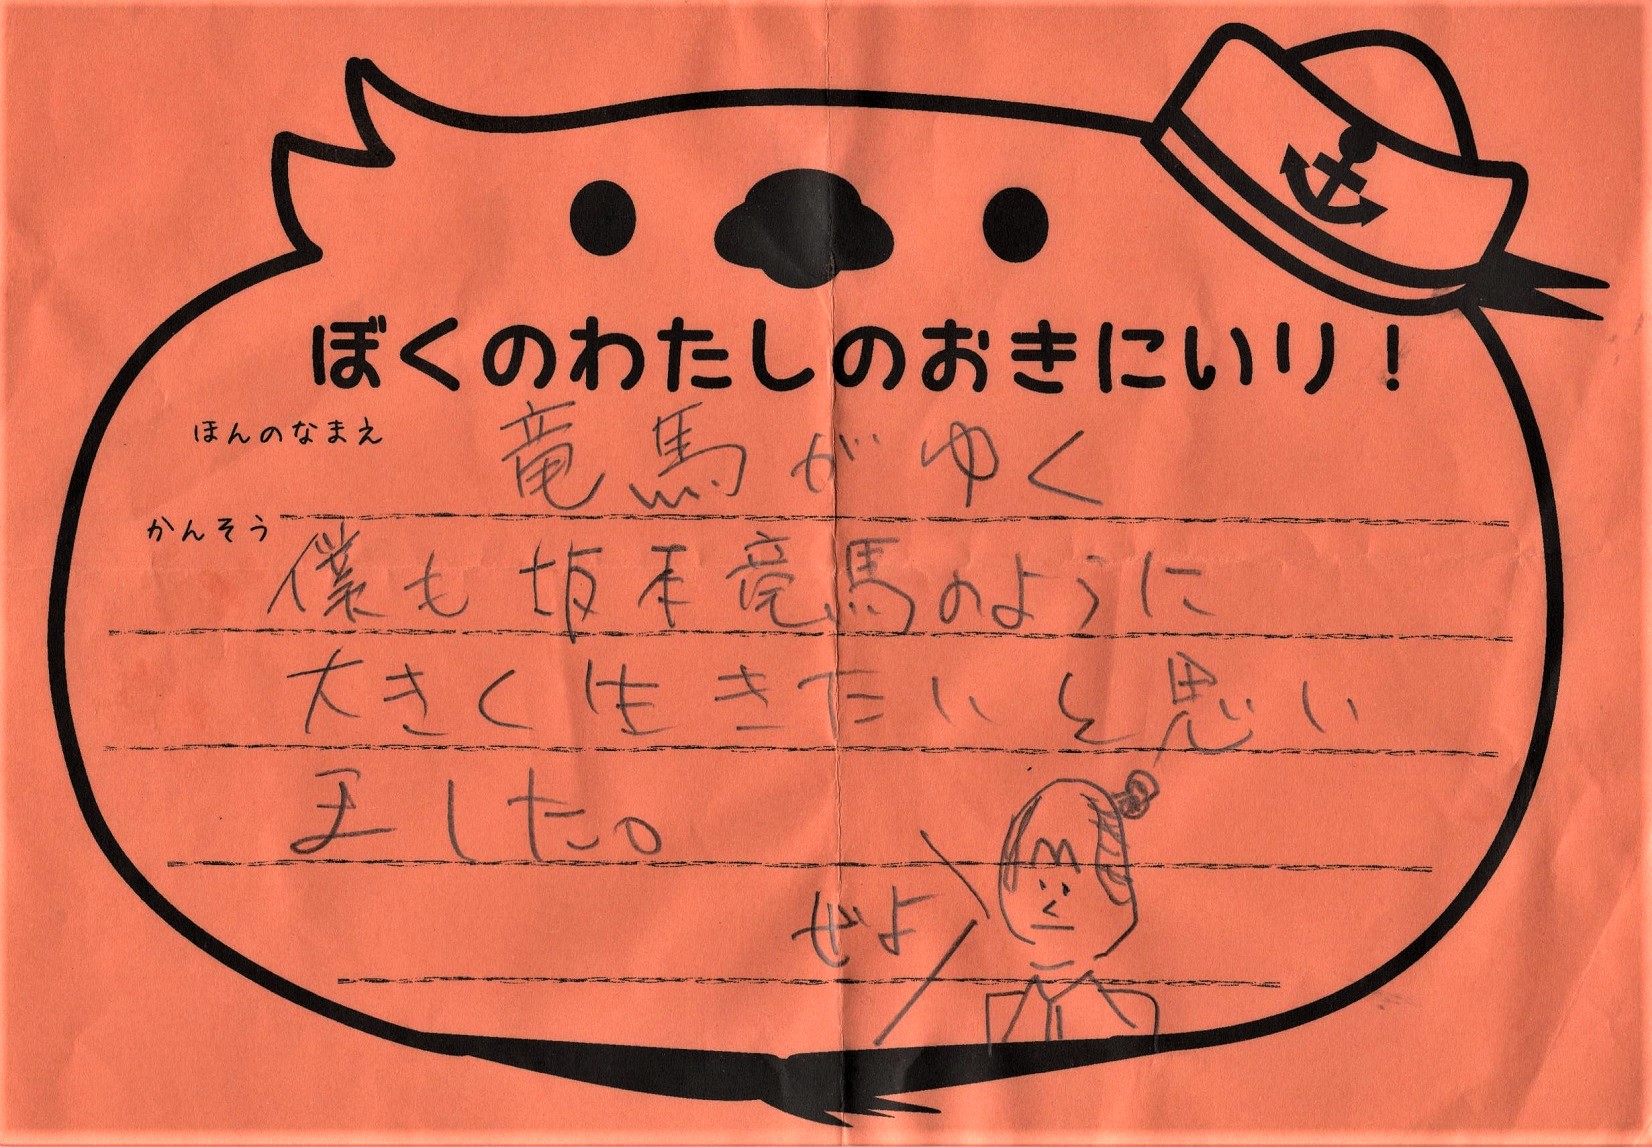 ぼくのわたしのおきにいり！
ほんのなまえ
竜馬がゆく
かんそう
僕も坂本竜馬のように
大きく生きたいと思い
ました。
ぜよ